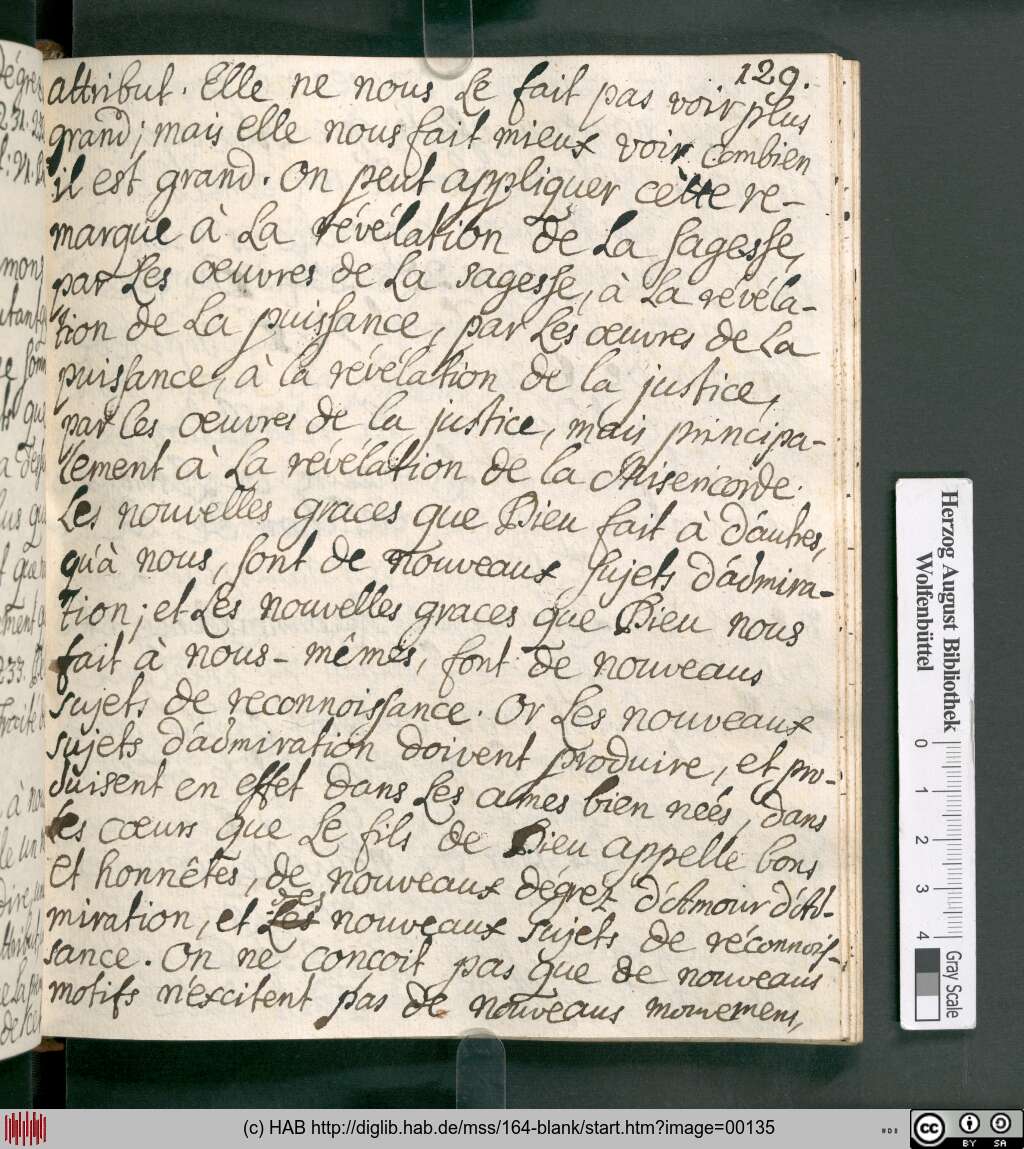 129.
attribut. Elle ne nous Le fait pas voir plus
grand; mais elle nous fait mieux voir combien
il est grand. On peut appliquer cètte re-
marque à La révélation de La sagesse,
par Les œuvres de La sagesse, à La révéla-
tion de La puissance, par Les œuvres de La
puissance, à la révélation de la justice,
par les œuvres de la justice, mais principa-
lement à La révélation de la Misericorde.
Les nouvelles graces que Dieu fait à d'autres,
qu'à nous, sont de nouveaux sujets d'admira-
tion; et Les nouvelles graces que Dieu nous
fait à nous-mêmes, sont de nouveaus
sujets de reconnoissance. Or Les nouveaux
sujets d'admiration doivent produire, et pro-
duisent en effet dans Les ames bien neés, dans
les cœurs que Le fils de Dieu appelle bons
Et honnêtes, de nouveaux dégrez d'Amour d'Ad-
miration, et des nouveaux sujets de réconnois-
sance. On ne conçoit pas que de nouveaus
motifs n'excitent pas de nouveaus mouvemens,
Herzog August Bibliothek
Wolfenbüttel
0 1 2 3 4
Gray Scale
(c) HAB http://diglib.hab.de/mss/164-blank/start.htm?image=00135
cc BY SA